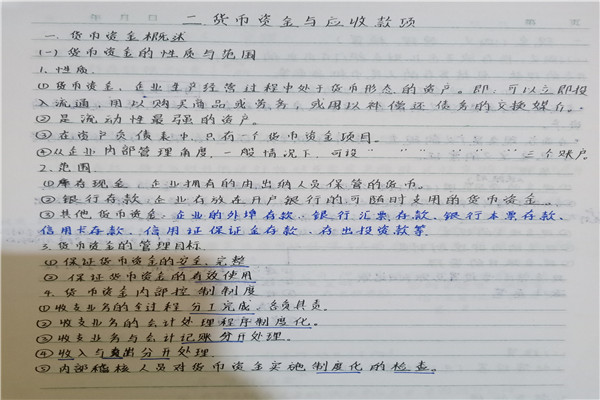 二 货币资金与应收款项
一. 货币资金概述
(一) 货币资金的性质与范围
1. 性质.
①货币资金, 企业生产经营过程中处于货币形态的资产。即, 可以立即投
入流通, 用以购买商品或劳务, 或用以补偿还债务的交换媒介。
②是流动性最强的资产。
③在资产负债表中, 只有一个货币资金项目。
④从企业内部管理角度, 一般情况下, 可设 " " " " " " 三个账户.
2. 范围.
①库存现金: 企业拥有的由出纳人员保管的货币。
②银行存款: 企业存放在开户银行的可随时支用的货币资金。
③其他货币资金: 企业的外埠存款、银行汇票存款、银行本票存款、
信用卡存款、信用证保证金存款、存出投资款等.
3. 货币资金的管理目标
①保证货币资金的安全、完整
②保证货币资金的有效使用
4. 货币资金内部控制制度
①收支业务的全过程分工完成, 各负其责.
②收支业务的会计处理程序制度化。
③收支业务与会计记账分开处理.
④收入与支出分开处理.
⑤内部稽核人员对货币资金实施制度化的检查。